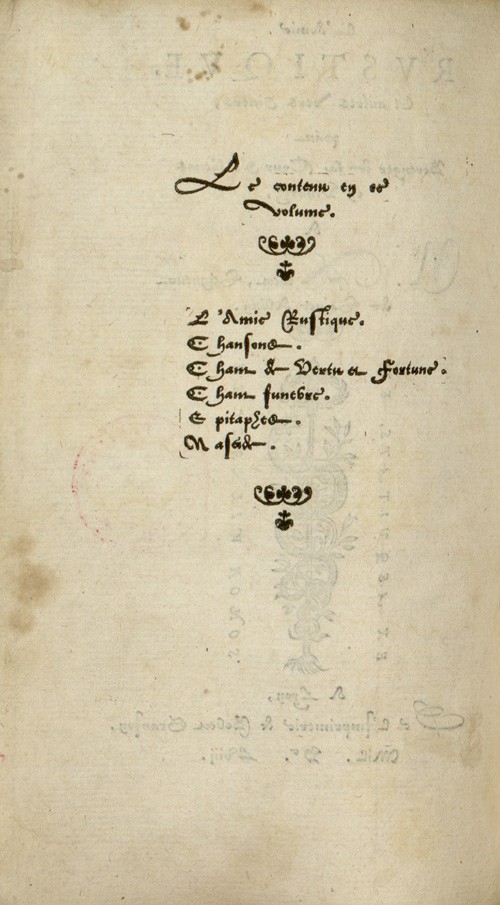 Le contenu en ce
volume.
L'Amie Rustique.
Chansons.
Chant de Vertu et Fortune.
Chant funebre.
Epitaphes.
Naseide.